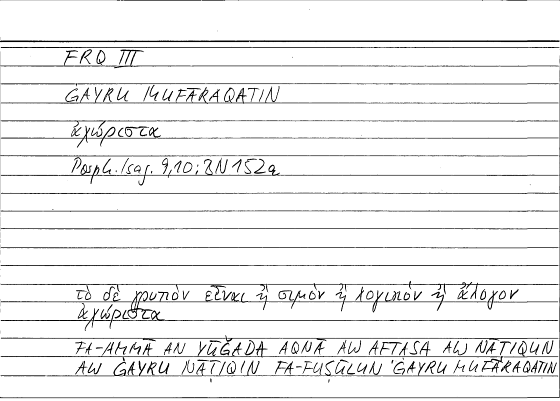 FRQ III
ĠAYRU MUFĀRAQATIN
ἀχώριστα
Porph. Isag. 9,10; BN 152a
τὸ δὲ γρυπὸν εἶναι ἢ σιμὸν ἢ λογικὸν ἢ ἄλογον
ἀχώριστα
FA-AMMĀ AN YŪǦADA AQNĀ AW AFṬASA AW NĀṬIQUN
AW ĠAYRU NĀṬIQIN FA-FUṢŪLUN ĠAYRU MUFĀRAQATIN